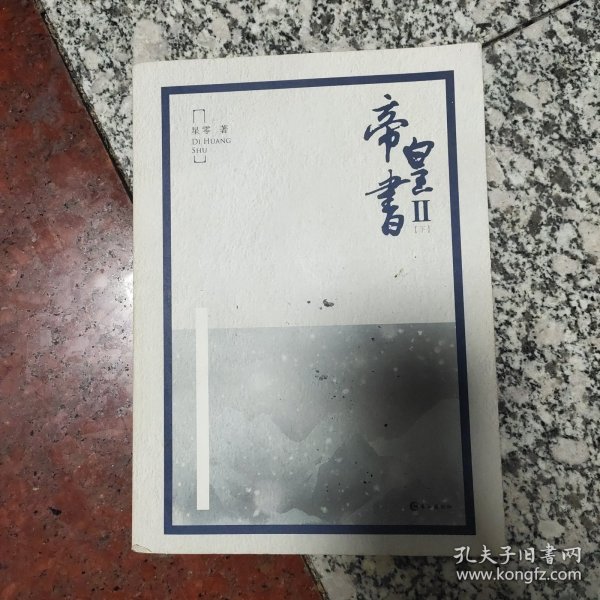 星零 著
DI HUANG
SHU
帝皇書
II
【下】
长江出版社
孔夫子旧书网
www.kongfz.com